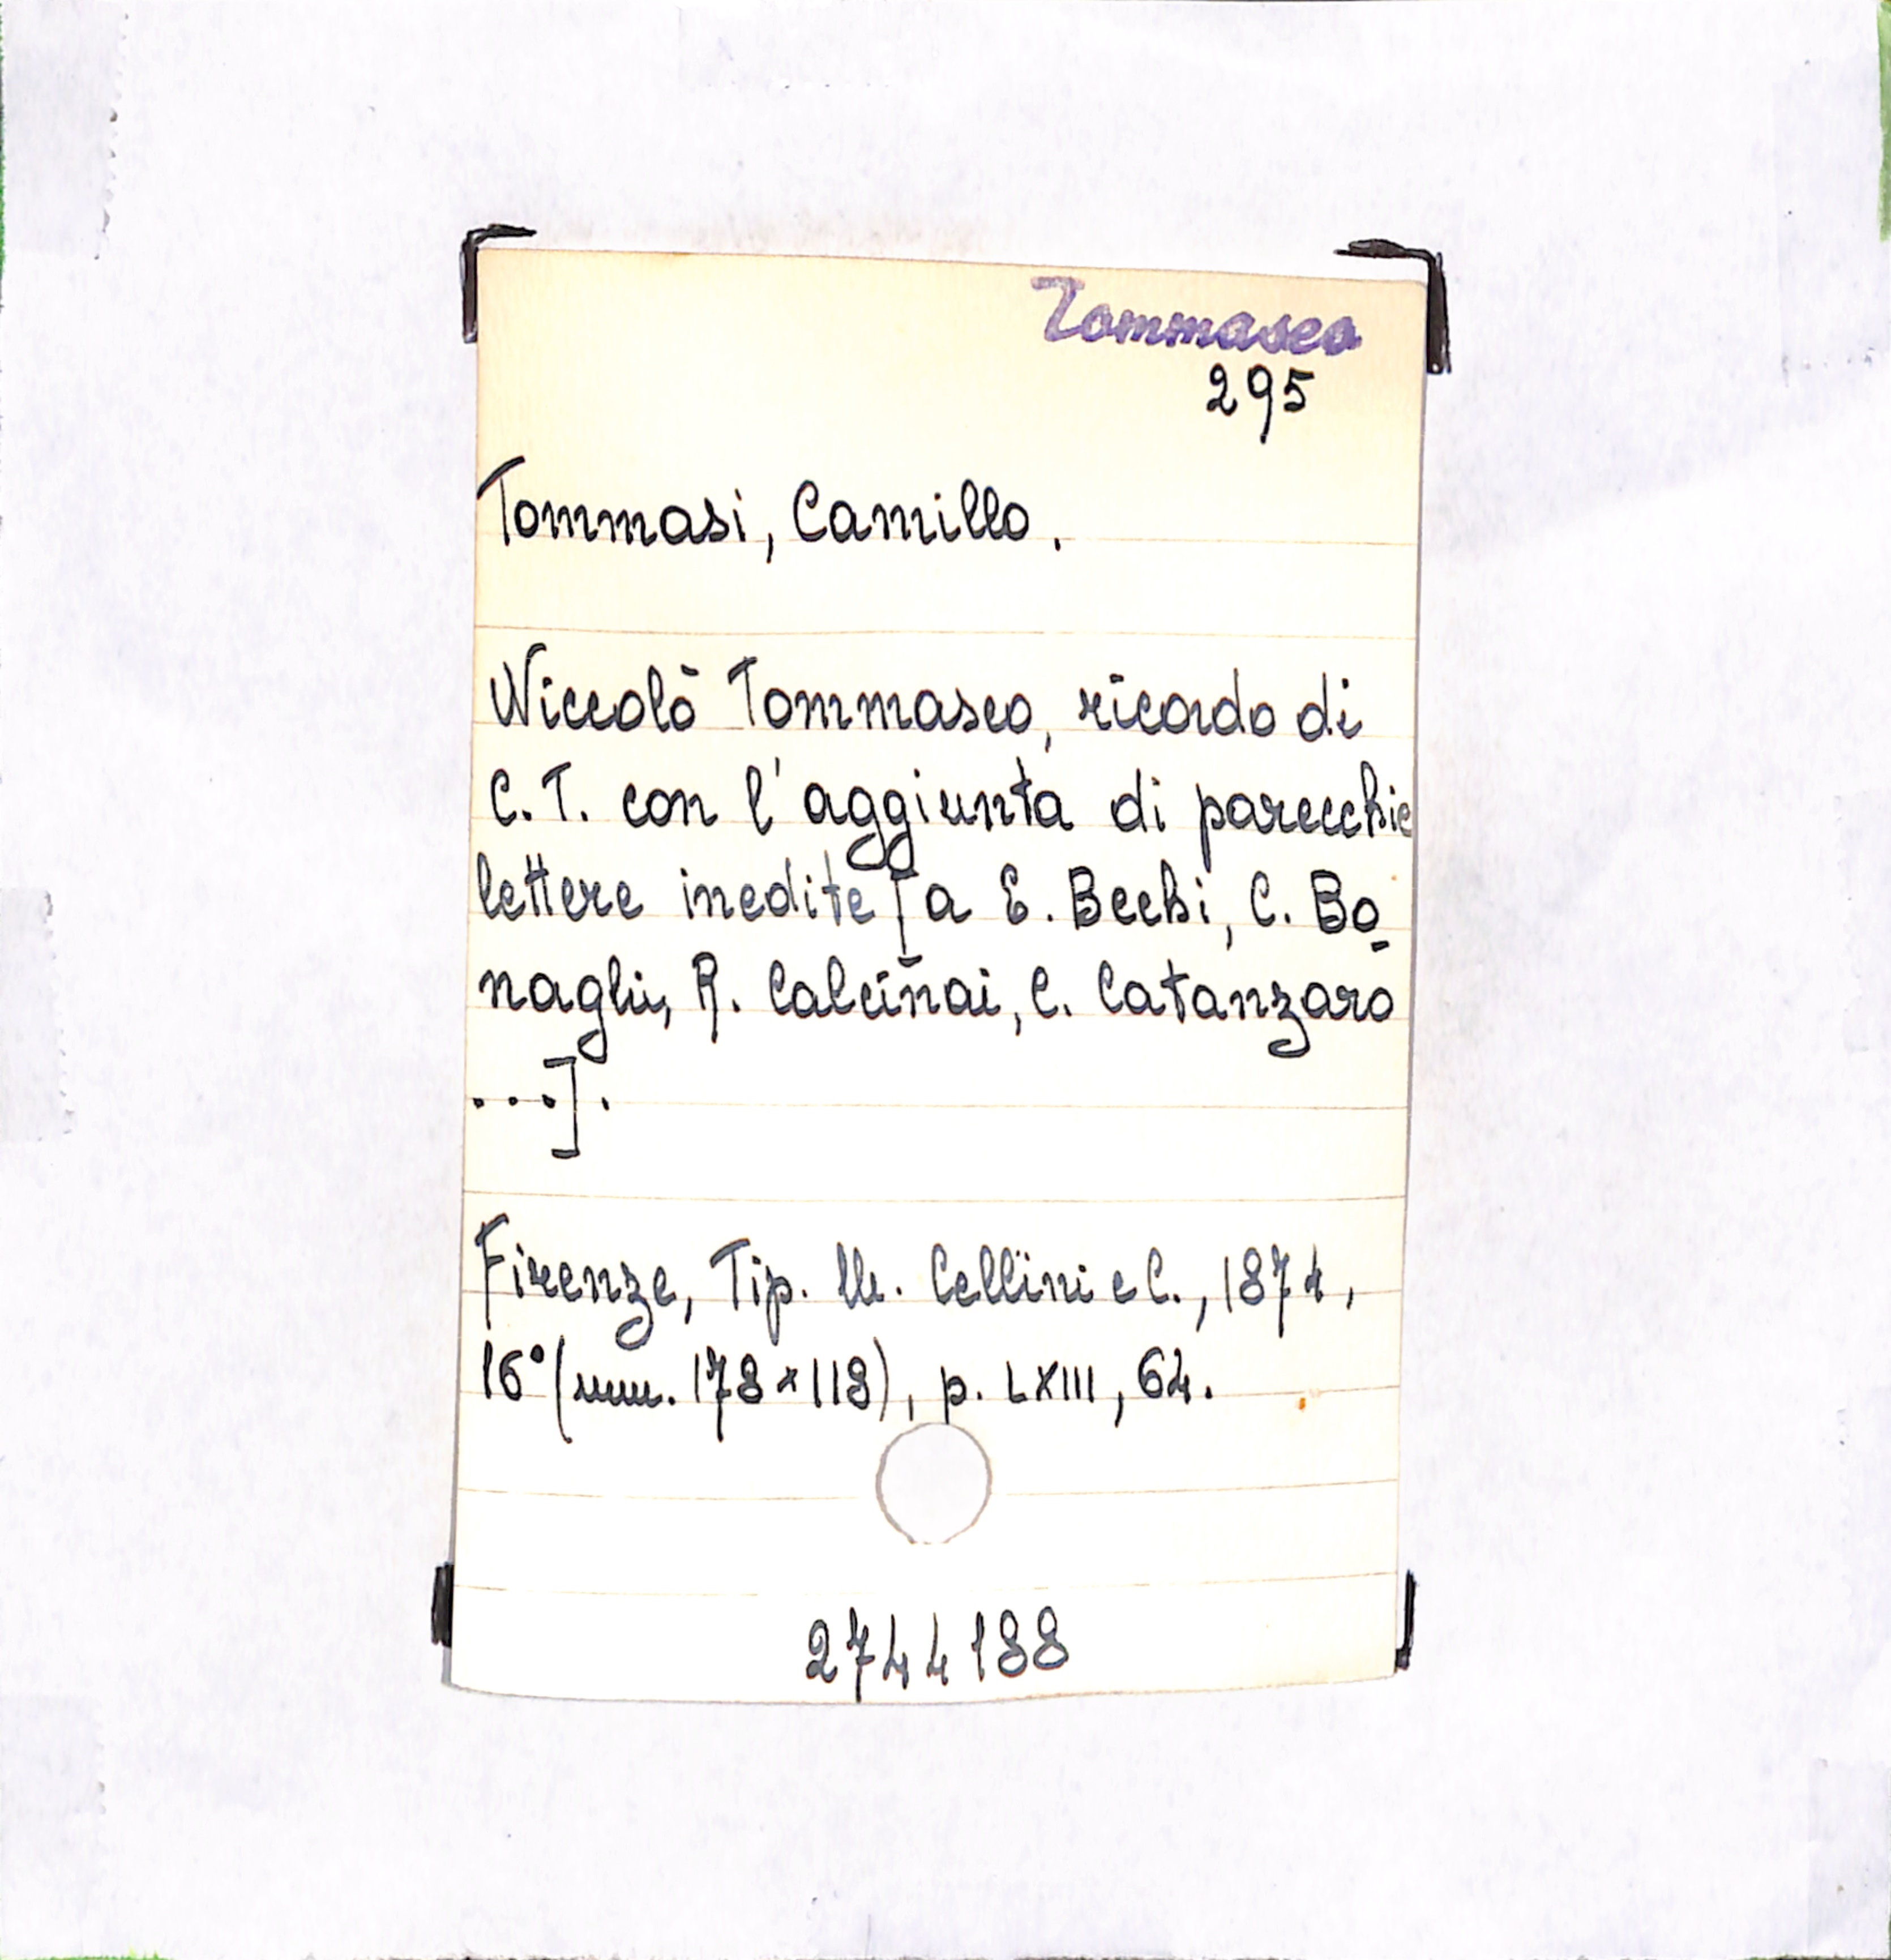 Tommaseo
295
Tommasi, Camillo.
Niccolò Tommaseo, ricordo di
C. T. con l'aggiunta di parecchie
lettere inedite [a E. Bechi, C. Bo-
naglii, R. Calcinai, C. Catanzaro
...].
Firenze, Tip. M. Cellini e C., 1874,
16° (mm. 178×118), p. LXIII, 64.
2744188